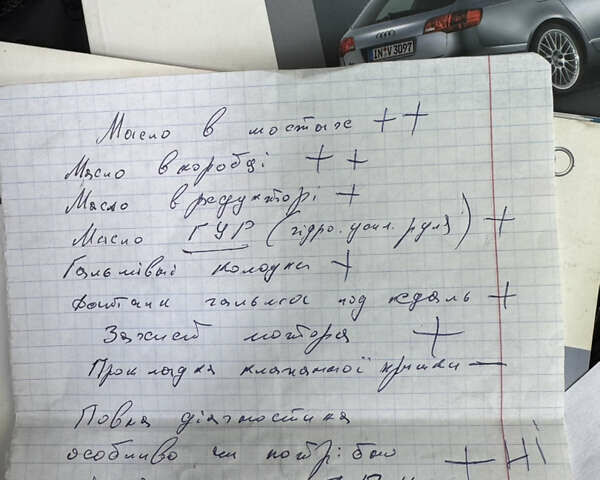 IN·V 3097
Масло в мостах + +
Масло в коробці + +
Масло в редукторі +
Масло ГУР (гідро.усил. руля) +
Гальмівні колодки +
гальма под педаль +
Захист мотора +
Прокладка клапанної кришки —
Повна діагностика
особливо чи потрібно + Ні